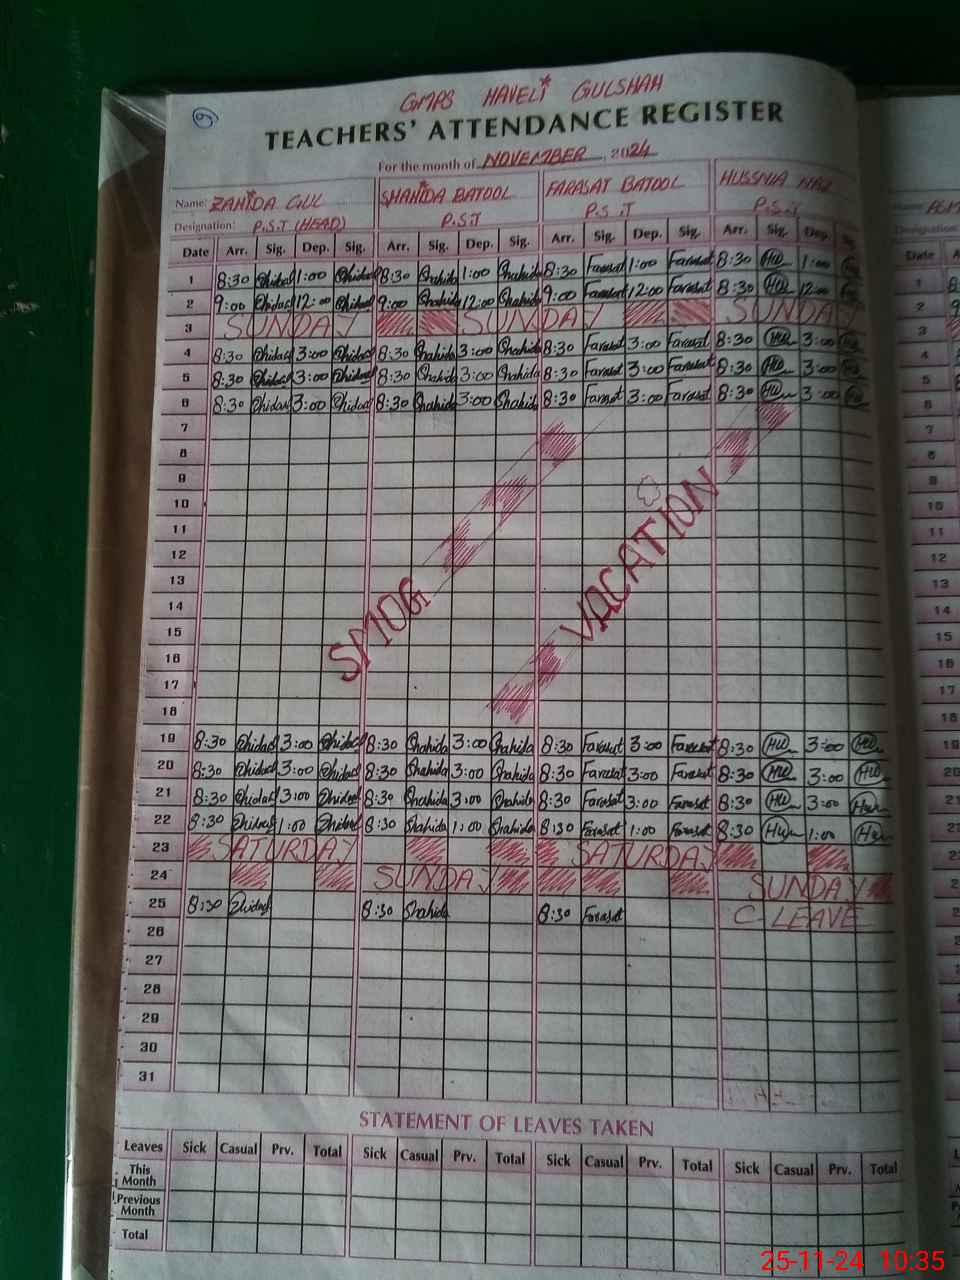 6
GMPS HAVELI GULSHAH
TEACHERS' ATTENDANCE REGISTER
For the month of NOVEMBER, 2024
Name: ZAHIDA GUL SHAHIDA BATOOL FARASAT BATOOL HUSSNIA NAZ
Designation: P.S.T (HEAD) P.S.T P.S.T P.S.T
Date Arr. Sig. Dep. Sig. Arr. Sig. Dep. Sig. Arr. Sig. Dep. Sig. Arr. Sig. Dep.
1 8:30 1:00 8:30 Shahida 1:00 Shahida 8:30 Farasat 1:00 Farasat 8:30 1:00
2 9:00 12:00 9:00 Shahida 12:00 Shahida 9:00 Farasat 12:00 Farasat 8:30 12:00
3 SUNDAY SUNDAY SUNDAY
4 8:30 3:00 8:30 Shahida 3:00 Shahida 8:30 Farasat 3:00 Farasat 8:30 3:00
5 8:30 3:00 8:30 Shahida 3:00 Shahida 8:30 Farasat 3:00 Farasat 8:30 3:00
6 8:30 3:00 8:30 Shahida 3:00 Shahida 8:30 Farasat 3:00 Farasat 8:30 3:00
7
8
9
10
11
12
13
14
15
16
17
18
SMOG VACATION
19 8:30 3:00 8:30 Shahida 3:00 Shahida 8:30 Farasat 3:00 Farasat 8:30 3:00
20 8:30 3:00 8:30 Shahida 3:00 Shahida 8:30 Farasat 3:00 Farasat 8:30 3:00
21 8:30 3:00 8:30 Shahida 3:00 Shahida 8:30 Farasat 3:00 Farasat 8:30 3:00
22 8:30 1:00 8:30 Shahida 1:00 Shahida 8:30 Farasat 1:00 Farasat 8:30 1:00
23 SATURDAY SATURDAY
24 SUNDAY SUNDAY
25 8:30 8:30 Shahida 8:30 Farasat C-LEAVE
26
27
28
29
30
31
STATEMENT OF LEAVES TAKEN
Leaves Sick Casual Prv. Total Sick Casual Prv. Total Sick Casual Prv. Total Sick Casual Prv. Total
This Month
Previous Month
Total
Date
1
2
3
4
5
6
7
8
9
10
11
12
13
14
15
16
17
18
19
20
21
22
25-11-24 10:35